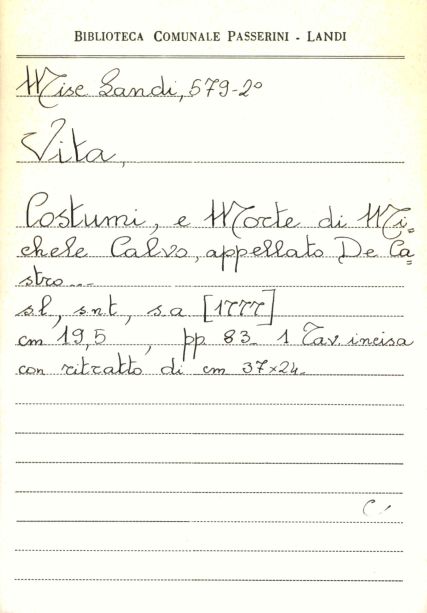 BIBLIOTECA COMUNALE PASSERINI - LANDI
Misc Landi, 579-2°
Vita,
Costumi, e Morte di Mi=
chele Calvo, appellato De Ca=
stro...
s.l, s.n.t, s.a [1777]
cm 19,5 , pp 83. 1 Tav. incisa
con ritratto di cm 37x24.